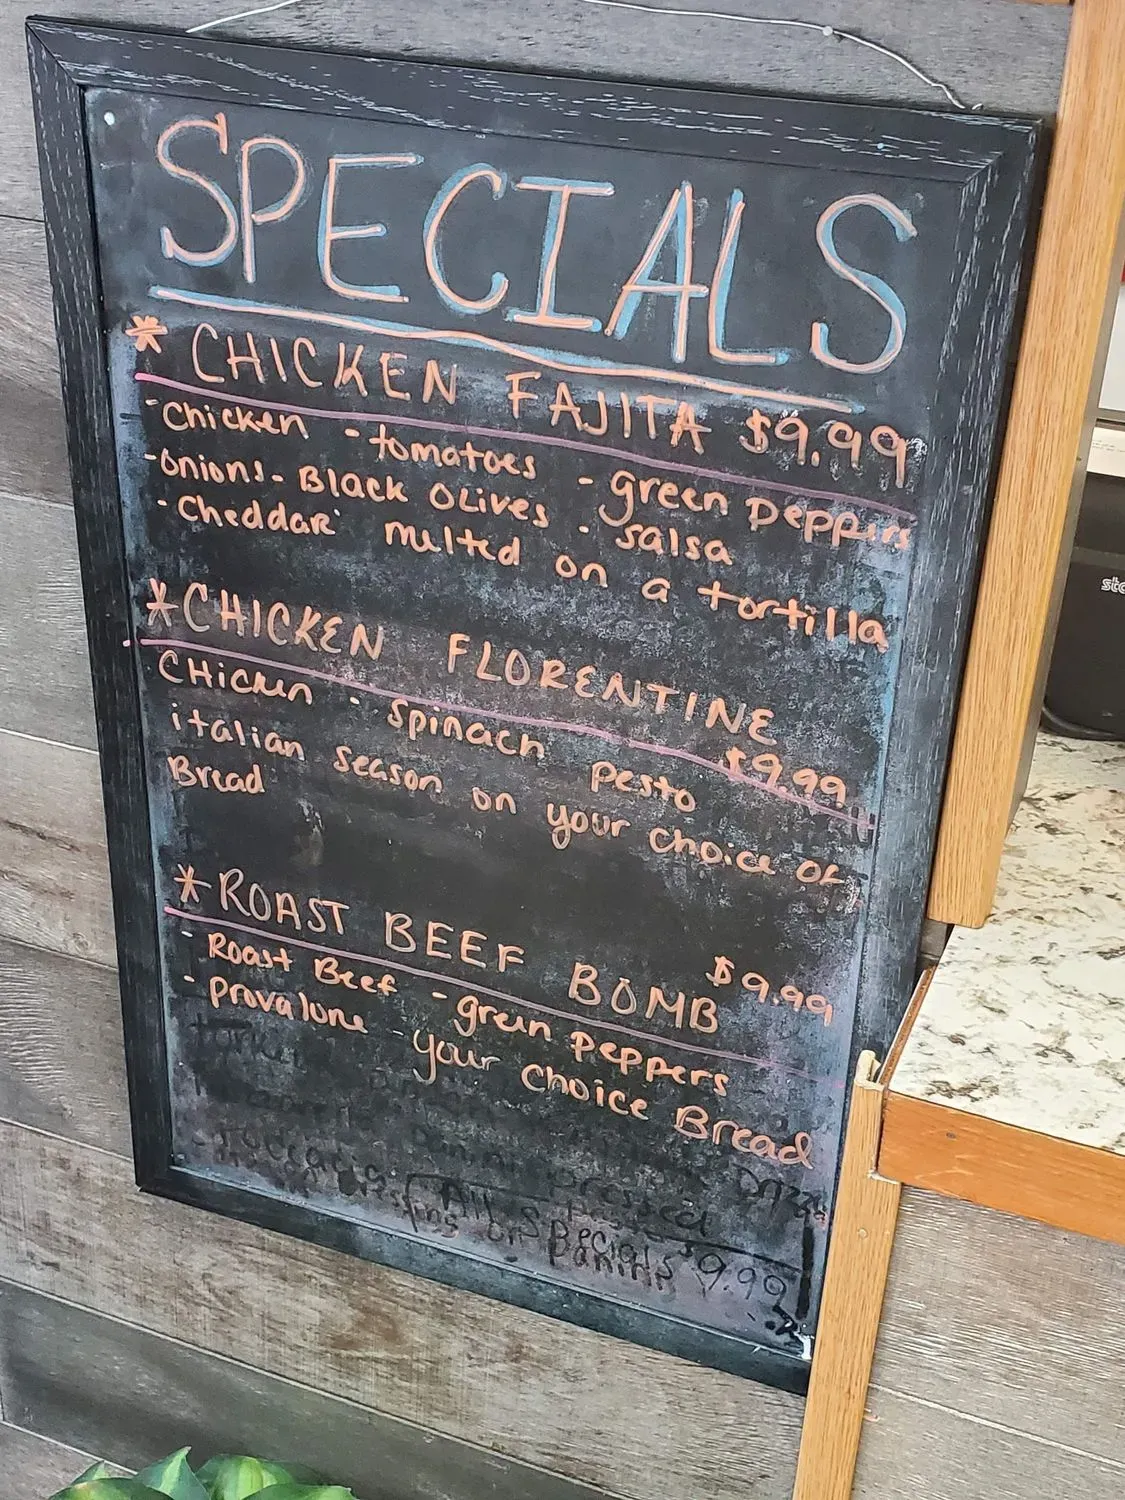 SPECIALS
* CHICKEN FAJITA $9.99
-Chicken -tomatoes -green peppers
-onions- Black OLives - salsa
-Cheddar melted on a tortilla
*CHICKEN FLORENTINE
$9.99
CHicken - spinach pesto
italian season on your choice of
Bread
*ROAST BEEF BOMB $9.99
- Roast Beef - green peppers
- provalone - your choice Bread
pressed
All specials $9.99